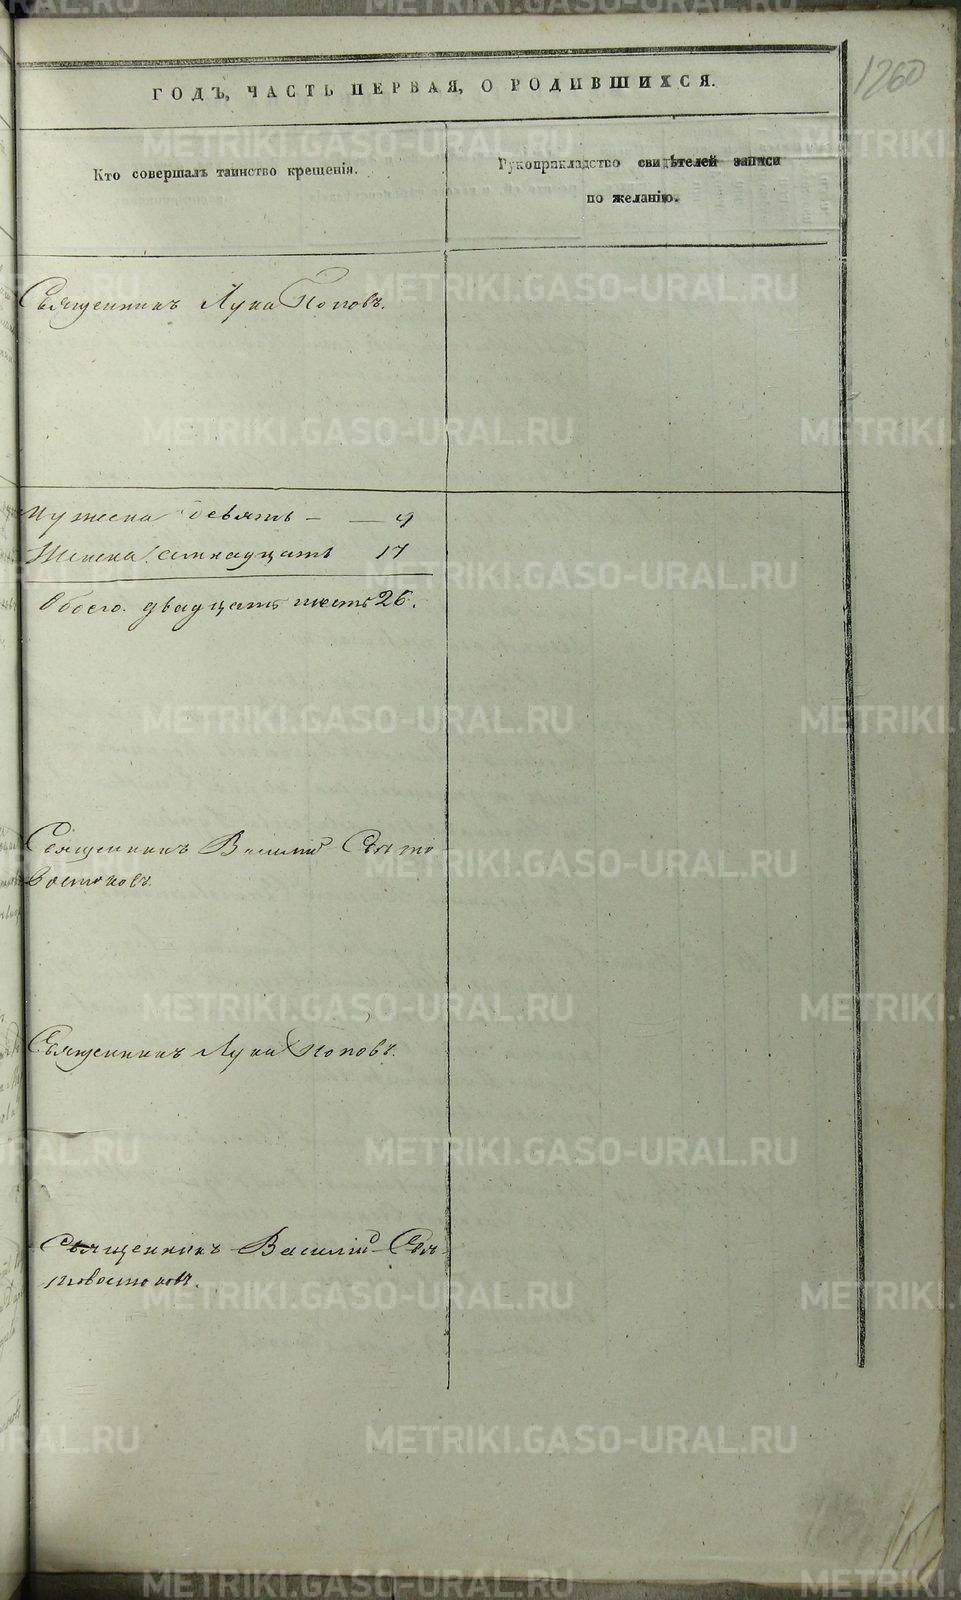 1260
ГОДЪ, ЧАСТЬ ПЕРВАЯ, О РОДИВШИХСЯ.
Кто совершалъ таинство крещенія.
Рукоприкладство свидѣтелей записи
по желанію.
Священникъ Лука Поповъ.
Мужеска девять — — 9
Женска семнадцать 17
Обоего двадцать шесть 26.
Священникъ Василій Свято
востоковъ.
Священникъ Лука Поповъ.
Священникъ Василій Свя-
товостоковъ.
METRIKI.GASO-URAL.RU